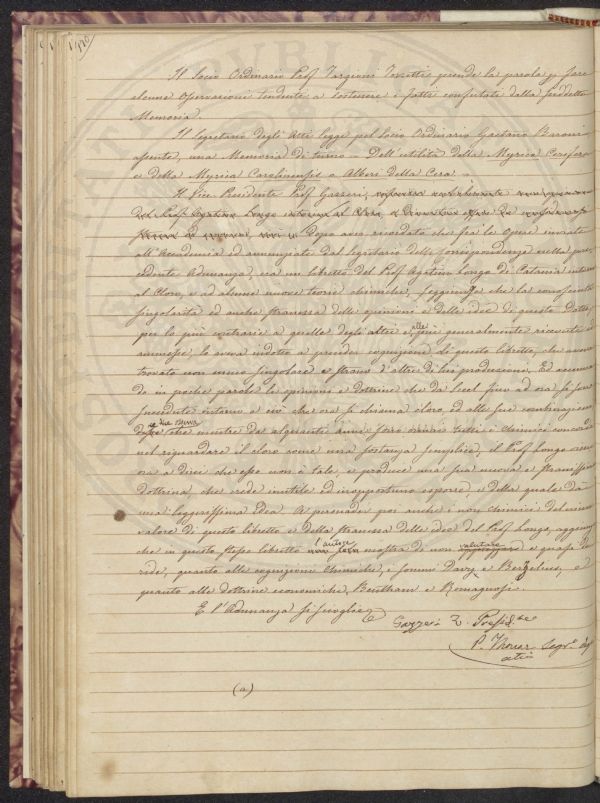 Il Socio Ordinario Prof Targioni Tozzetti prende la parola p fare
alcune Osservazioni tendenti a sostenere i fatti confutati dalla suddetta
Memoria.
Il Segretario degli Atti legge pel Socio Ordinario Gaetano Baroni
assente, una Memoria di turno = Dell'utilità della Myrica Cerifera
e della Myrica Carolinensis o Alberi della Cera =
Il Vice Presidente Prof Gazzeri,
dopo aver ricordato che fra le Opere inviate
all'Accademia ed annunziate dal Segretario delle Corrispondenze nella pre
cedente Adunanza, era un libretto del Prof Agatino Longo di Catania intorno
al Cloro, e ad alcune nuove teorie chimiche, soggiunse che la conosciuta
singolarità ed anche stranezza delle opinioni e delle idee di questo Dotto
per lo più contrarie a quelle degli altri e alle più generalmente ricevute ed
ammesse, lo aveva indotto a prender cognizione di questo libretto, che aveva
trovato non meno singolare e strano d'altre di lui produzioni. Ed accennan
do in poche parole le opinioni e dottrine che da Scheel fino ad ora si sono
succedute intorno a ciò che ora si chiama cloro ed alle sue combinazioni
disse che mentre da alquanti anni sono ormai tutti i Chimici concordi
nel riguardare il cloro come una sostanza semplice, il Prof Longo viene
ora a dirci che esso non è tale, e produce una sua nuova e stranissima
dottrina, che crede inutile ed inopportuno esporre, e della quale dà
una leggerissima idea. A persuader poi anche i non chimici del niun
valore di questo libretto e della stranezza delle idee del Prof Longo, aggiunse
che in questo stesso libretto l'autore mostra di non valutare e quasi de
ride, quanto alle cognizioni Chimiche, i sommi Davy e Berzelius, e
quanto alle dottrine economiche, Bentham e Romagnosi.
E l'Adunanza si scioglie
Gazzeri V. Presid.te
P. Thouar Segr.o degli
atti
(a)